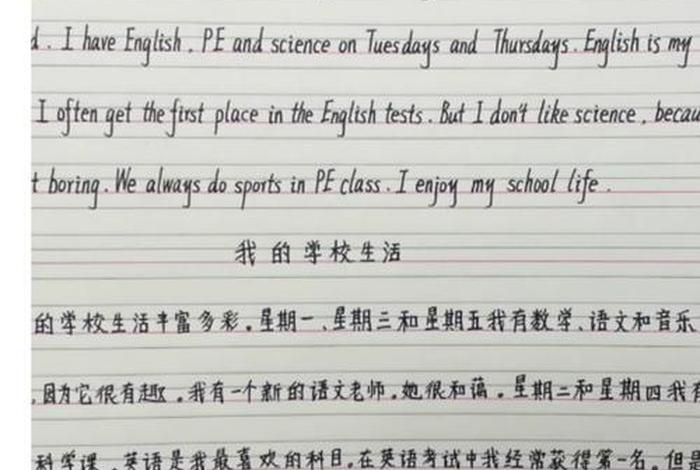 d. I have English, PE and science on Tuesdays and Thursdays. English is my
I often get the first place in the English tests. But I don't like science, becau
t boring. We always do sports in PE class. I enjoy my school life.
我的学校生活
的学校生活丰富多彩。星期一、星期三和星期五我有数学、语文和音乐
,因为它很有趣。我有一个新的语文老师。她很和蔼。星期二和星期四我有
科学课。英语是我最喜欢的科目。在英语考试中我经常获得第一名。但是